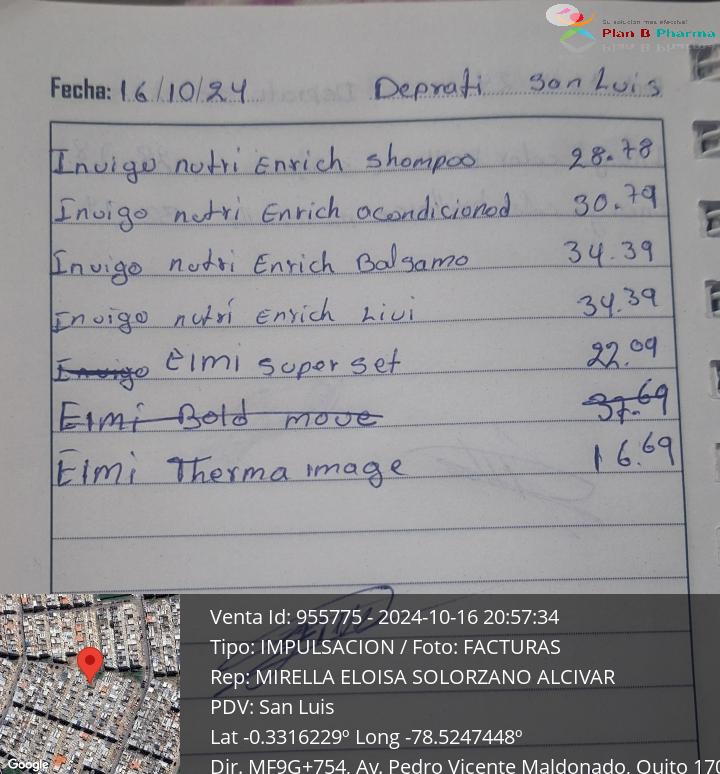 Su solucion mas efectiva!
Plan B Pharma
Fecha: 16/10/24 Deprati San Luis
Invigo nutri Enrich shampoo 28.78
Invigo nutri Enrich acondicionad 30.79
Invigo nutri Enrich Balsamo 34.39
Invigo nutri Enrich Livi 34.39
Invigo EImi super set 22.09
EImi Bold move 37.69
EImi Therma image 16.69
Venta Id: 955775 - 2024-10-16 20:57:34
Tipo: IMPULSACION / Foto: FACTURAS
Rep: MIRELLA ELOISA SOLORZANO ALCIVAR
PDV: San Luis
Lat -0.3316229º Long -78.5247448º
Dir. MF9G+754, Av. Pedro Vicente Maldonado, Quito 170
Google